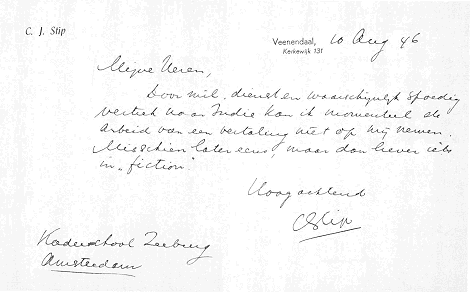 C. J. Stip
Veenendaal, 10 Aug 46
Kerkewijk 131
Mijne Heren,
Door mil. dienst en waarschijnlijk spoedig
vertrek naar Indie kan ik momenteel de
arbeid van een vertaling niet op mij nemen.
Misschien later eens, maar dan liever iets
in „fiction".
Hoogachtend
CStip
Kaderschool Zeeburg
Amsterdam